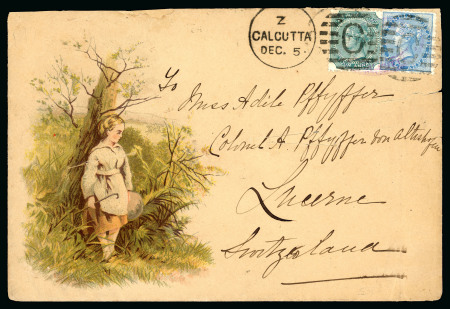 Z
CALCUTTA
DEC. 5
To
Miss Adile Pffyffer
Colonel A. Pffyffer von Altishofen
Lucerne
Switzerland